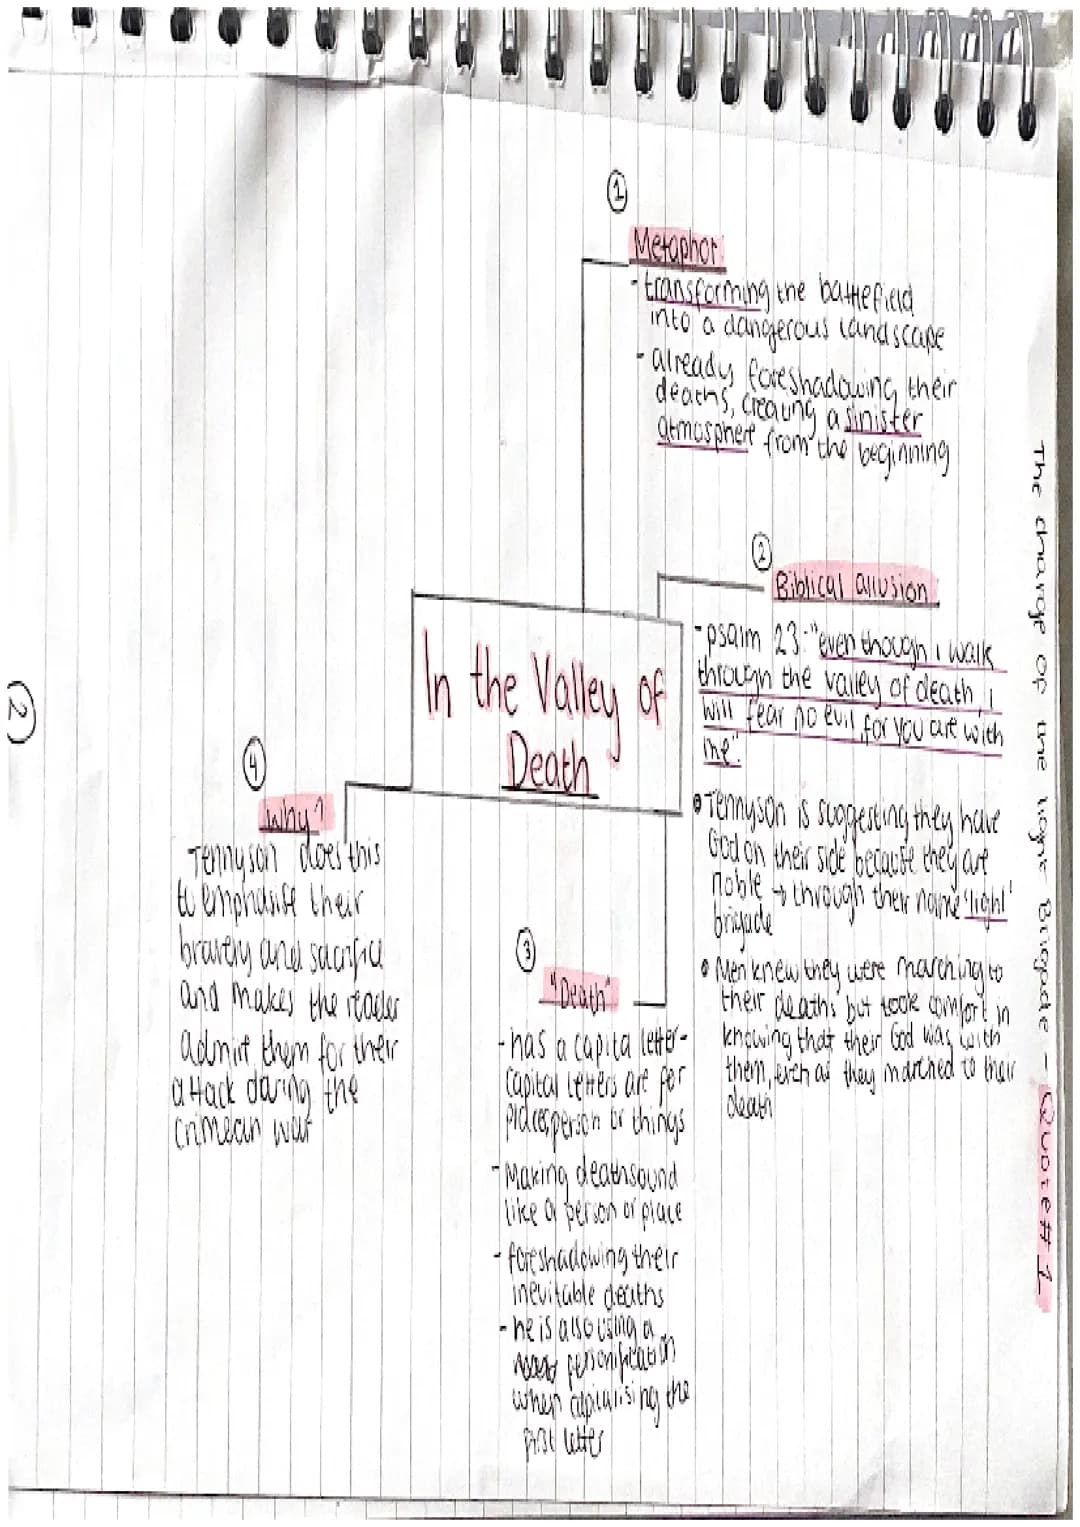 The charge of the light Brigade - Quote # 1
①
Metaphor:
- transforming the battlefield
into a dangerous landscape
- already foreshadowing their
deaths, creating a sinister
atmosphere from the beginning
②
Biblical allusion
- psalm 23: "even though i walk
through the valley of death, i
will fear no evil, for you are with
me".
• Tennyson is suggesting they have
God on their side because they are
noble → through their name 'light'
brigade
• Men knew they were marching to
their deaths but took comfort in
knowing that their God was with
them, even as they marched to their
death
In the Valley of
Death
③
"Death"
- has a capital letter -
capital letters are for
place, person or things
- Making death sound
like a person or place
- foreshadowing their
inevitable deaths
- he is also using a
personification
when capitalising the
first letter
④
Why?
Tennyson does this
to emphasise their
bravery and sacrifice
and makes the reader
admire them for their
attack during the
crimean war
②